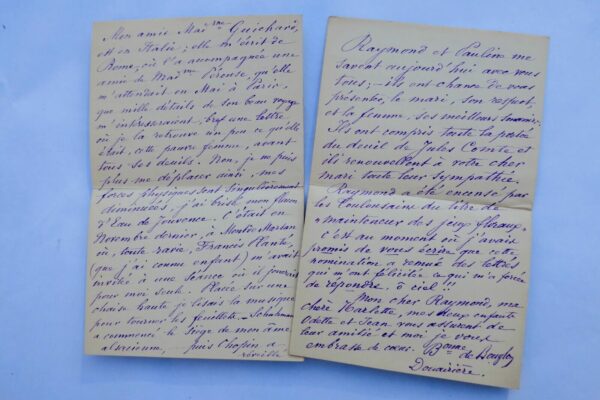 Mon amie Mai me Guichard,
est en Italie ; elle m'écrit de
Rome, où l'a accompagnée une
amie de Mai me qu'elle
m'attendait en Mai à Paris,
que mille détails de son beau voyage
m'intéresseraient ; bref une lettre
où je la retrouve un peu ce qu'elle
était, cette pauvre femme, avant
tous ses deuils. Non, je ne puis
plus me déplacer ainsi, mes
forces physiques sont singulièrement
diminuées, j'ai brisé mon flacon
d'Eau de Jouvence. C'était en
Novembre dernier, à Mont de Marsan
où, toute ravie, Francis Planté,
(que j'ai connu enfant) m'avait
invitée à une séance où il jouerait
pour moi seule. Placée sur une
chaise haute je lisais la musique
pour tourner les feuillets. Schumann
a commencé le siège de mon âme
alsacienne, puis Chopin a
réveillé
Raymond et Pauline me
savent aujourd'hui avec vous
tous ; - ils ont chance de vous
présenter, le mari, son respect,
et la femme, ses meilleurs souvenirs.
Ils ont compris toute la portée
du deuil de Jules Comte et
ils renouvellent à votre cher
mari toute leur sympathie.
Raymond a été encensé par
les Toulousains du titre de
« mainteneur des jeux floraux »
c'est au moment où j'avais
promis de vous écrire que cette
nomination a remué des lettrés
qui m'ont félicitée ce qui m'a forcée
de répondre. ô ciel !!!
Mon cher Raymond, ma
chère Harlette, mes deux enfants
Odette et Jean vous assurent de
leur amitié et moi je vous
embrasse de cœur. Bonne
de
Douairière.